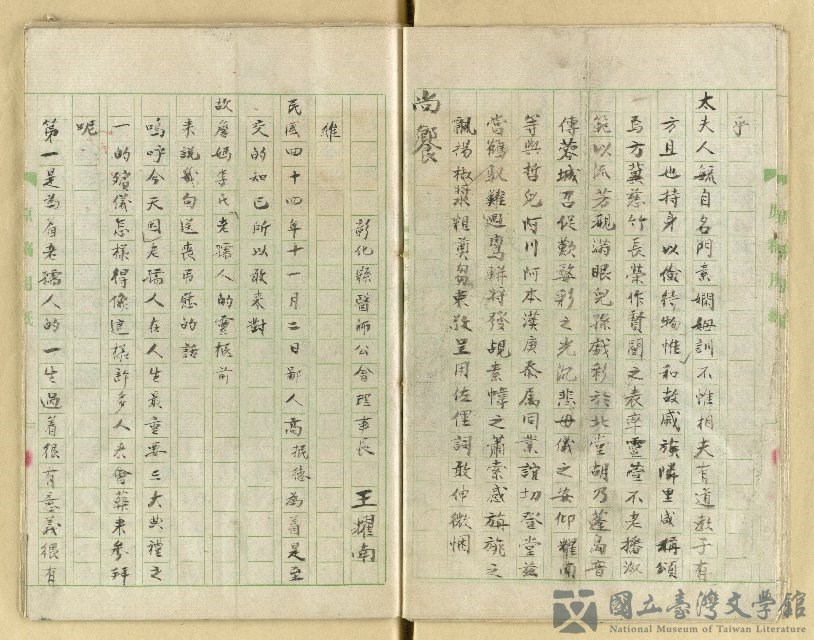 乎
太夫人毓自名門素嫻姆訓不惟相夫有道教子有
方且也持身以儉待物惟和故戚族隣里咸稱頌
焉方冀慈竹長榮作賢閫之表率靈萱不老播淑
範以流芳觀滿眼兒孫戲彩於北堂胡乃蓬島音
傳蓉城召促歎婺彩之光沉悲母儀之安仰耀南
等與哲兒阿川阿本漢庚忝属同業誼切登堂茲
當鶴馭難廻鸞輧將發覩素幃之蕭索感旗旐之
飄揚椒漿粗奠芻束敬呈用佐俚詞敢伸微悃
尚饗
彰化縣醫師公會理事長 王耀南
維
民國四十四年十一月二日鄙人高抿德為着是至
交的知己所以敢来對
故詹媽李氏老孺人的靈柩前
来說幾句送喪吊慰的話
嗚呼今天因老孺人在人生最重要三大典禮之
一的殯儀怎樣得像這樣許多人来會葬来参拜
呢
第一是為着老孺人的一生過着很有意義很有
國立臺灣文学館
National Museum of Taiwan Literature